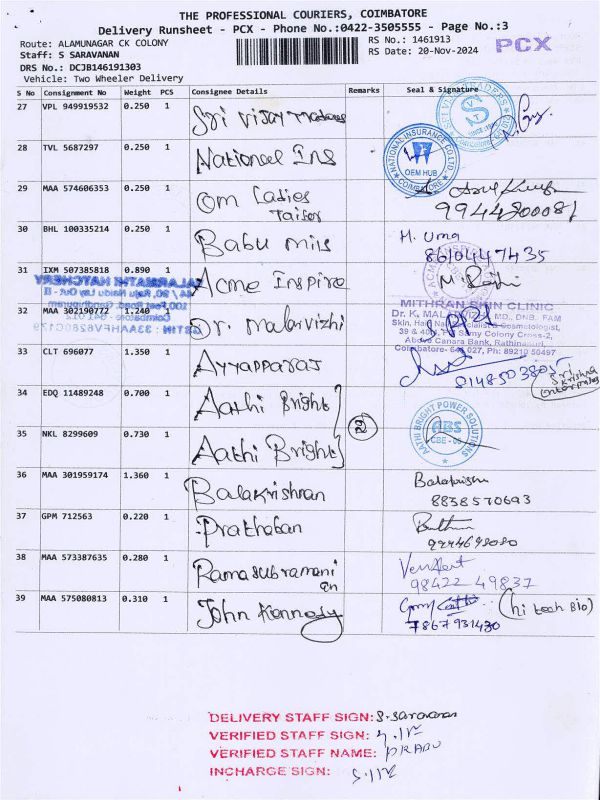 THE PROFESSIONAL COURIERS, COIMBATORE
Delivery Runsheet - PCX - Phone No.:0422-3505555 - Page No.:3
Route: ALAMUNAGAR CK COLONY
RS No.: 1461913
Staff: S SARAVANAN
RS Date: 20-Nov-2024
PCX
DRS No.: DCJB146191303
Vehicle: Two Wheeler Delivery
S No Consignment No Weight PCS Consignee Details Remarks Seal & Signature
27 VPL 949919532 0.250 1 Sri Vijay
28 TVL 5687297 0.250 1 National Ins
NATIONAL INSURANCE CO LTD
OEM HUB
COIMBATORE
29 MAA 574606353 0.250 1 Om Ladies
Tailor
9944200081
30 BHL 100335214 0.250 1 Babu Mills
M. Uma
8610447435
31 IXM 507385818 0.890 1 Acme Inspire
32 MAA 302190772 1.240 1 Dr. Malarvizhi
MITHRAN SKIN CLINIC
Dr. K. MALARVIZHI, MD., DNB, FAM
Skin, Hair Cosmetologist,
39 & 40, Samy Colony Cross-2,
Above Canara Bank, Rathinapuri,
Coimbatore- 641 027, Ph: 89210 50497
33 CLT 696077 1.350 1 Ayyapparaj
8148503805
Sri
Krishna
Enterprises
34 EDQ 11489248 0.700 1 Aathi Bright
2
AATHI BRIGHT POWER SOLUTIONS
ABS
CBE - 06
35 NKL 8299609 0.730 1 Aathi Bright
36 MAA 301959174 1.360 1 Balakrishnan
8838570693
37 GPM 712563 0.220 1 Prathaban
38 MAA 573387635 0.280 1 Ramasubramani
an
98422 49837
39 MAA 575080813 0.310 1 John Kennedy
(hi tech Bio)
7867931430
DELIVERY STAFF SIGN: S. Saravanan
VERIFIED STAFF SIGN:
VERIFIED STAFF NAME: PRABU
INCHARGE SIGN: